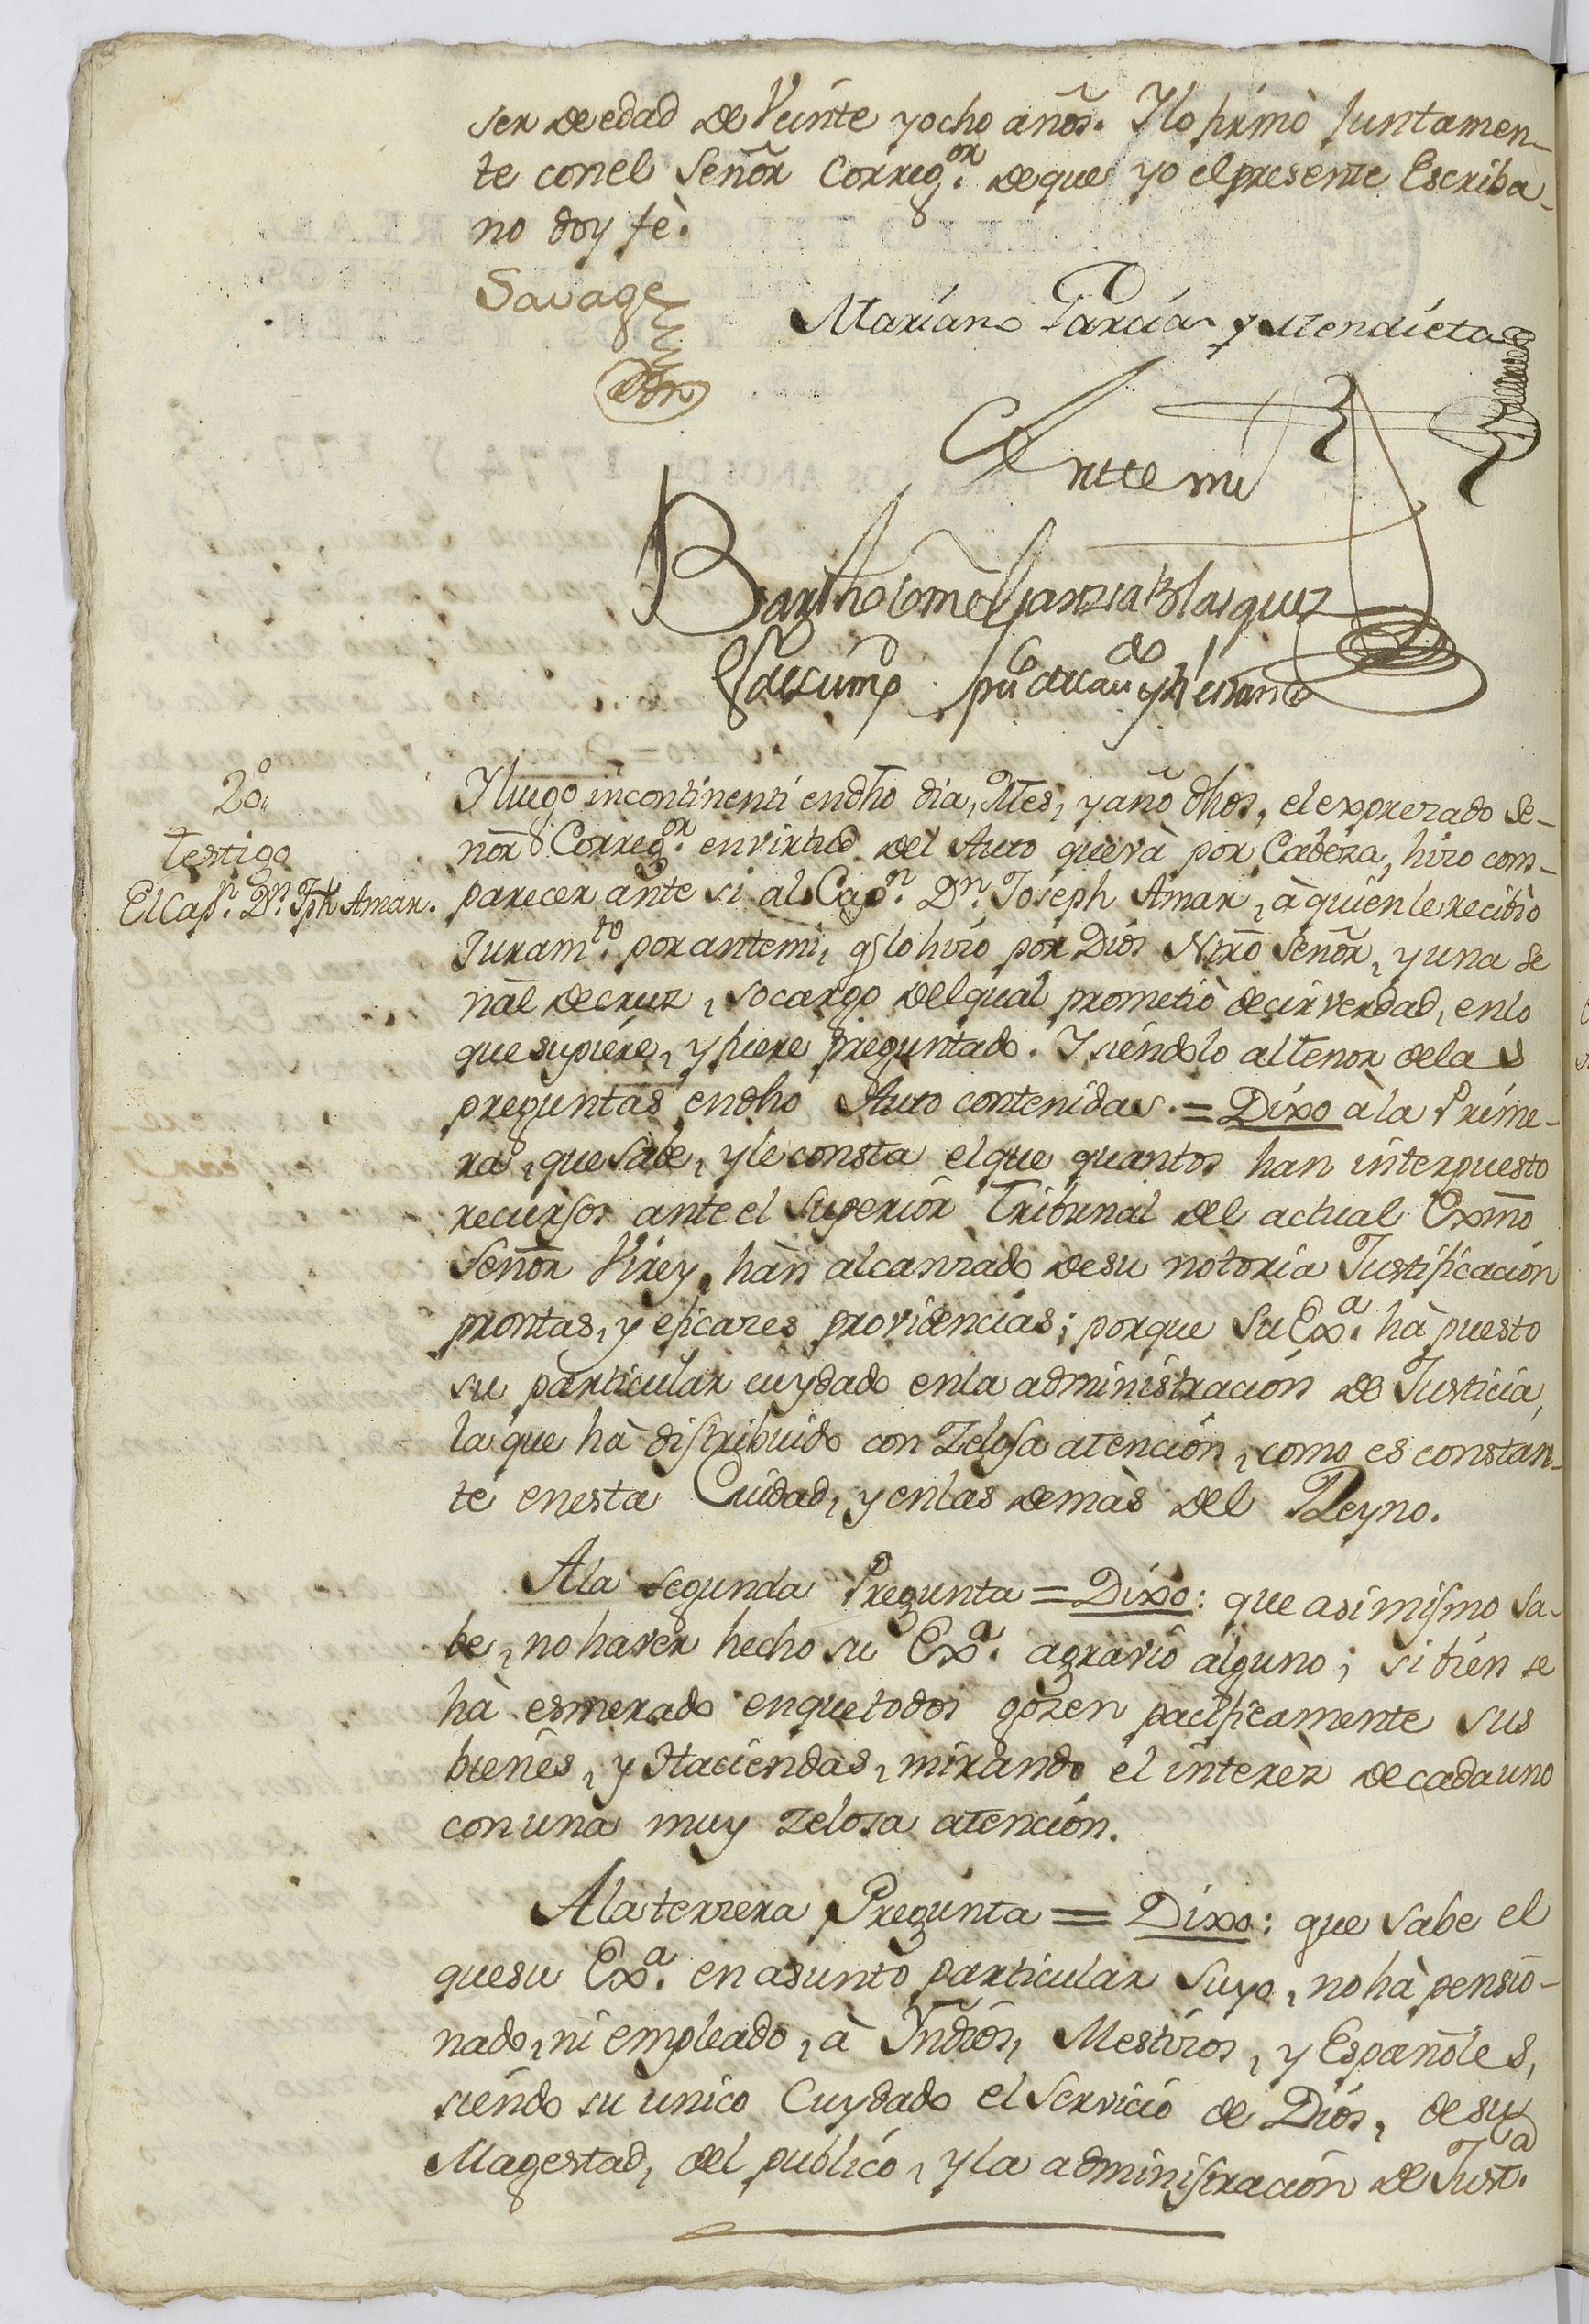 ser de edad de Veinte y ocho años. Y lo firmò Juntamen-
te con el Señor Correg.or de que yo el presente Escriba-
no doy fè.
Savage
Mariano Garcia y Mendieta
Antte mi
Bartholome Garzia Blasquez
2o.
testigo
El Cap.n D.n Jph Amar.
Y luego incontinenti en dho dia, Mes, y año dhos, el exprezado Se-
ñor Correg.or en virtud del Auto que và por Cabeza, hizo com-
parecer ante si al Cap.n D.n Joseph Amar, à quien le recibiò
Juram.to por ante mi, q lo hizo por Dios Ntro Señor, y una se
ñal de cruz, so cargo del qual prometiò decir verdad, en lo
que supiere, y fuere preguntado. Y siendolo al tenor de las
preguntas en dho Auto contenidas. = Dixo à la Prime-
ra, que sabe, y le consta el que quantos han interpuesto
recursos ante el Superior Tribunal del actual Exmo
Señor Virey, hàn alcanzado de su notoria Justificacion
prontas, y eficazes providencias; porque Su Ex.a hà puesto
su particular cuydado en la administracion de Justicia,
la que hà distribuido con Zelosa atencion, como es constan-
te en esta Ciudad, y en las demàs del Reyno.
A la segunda Pregunta = Dixo: que asi mismo sa-
be, no haver hecho su Ex.a agravio alguno; si bien se
hà esmerado en que todos gozen pacificamente sus
bienes, y Haciendas, mirando el interez de cada uno
con una muy zeloza atencion.
A la terzera Pregunta = Dixo: que sabe el
que su Ex.a en asunto particular suyo, no hà pensio-
nado, ni empleado, à Yndios, Mestizos, y Españoles,
siendo su unico Cuydado el Servicio de Dios, de su
Magestad, del publico, y la administracion de Just.a